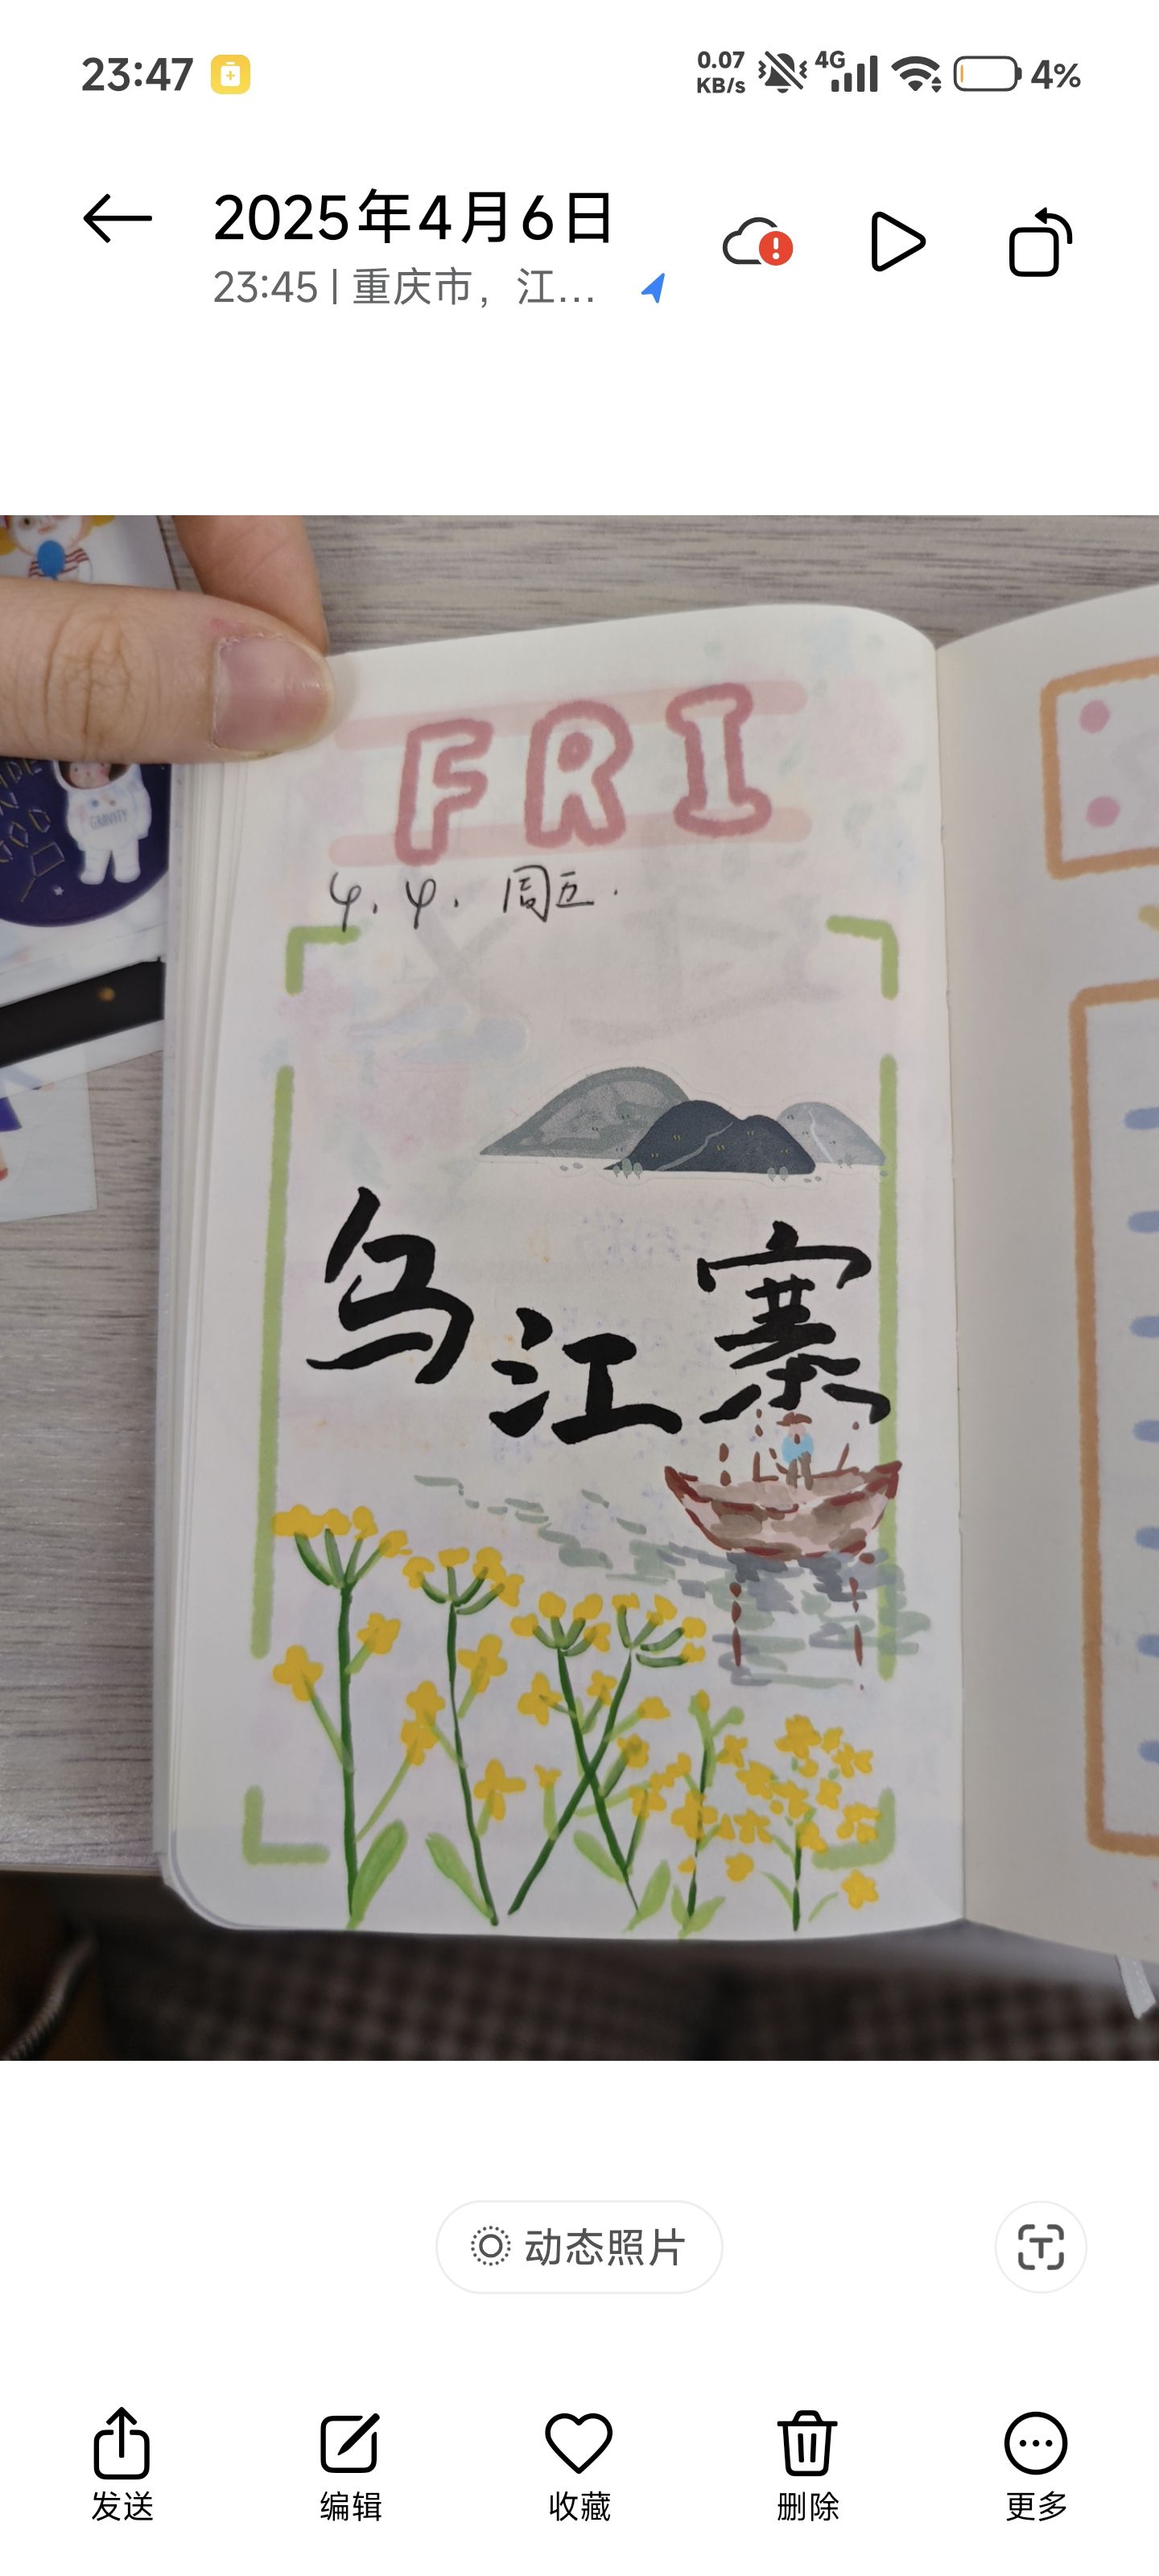 23:47
0.07 KB/s 4G 4%
2025年4月6日
23:45 | 重庆市，江...
GRAVITY
FRI
4.4. 周五.
乌江寨
动态照片
发送 编辑 收藏 删除 更多